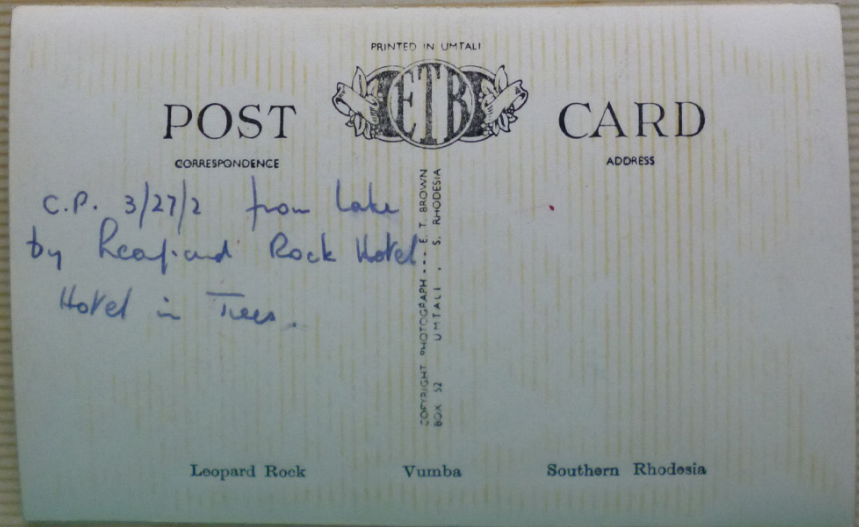 PRINTED IN UMTALI
ETB
POST CARD
CORRESPONDENCE ADDRESS
C.P. 3/27/2 from Lake
by Leopard Rock Hotel
Hotel in Trees.
COPYRIGHT PHOTOGRAPH --- E. T. BROWN
BOX 52 UMTALI . S. RHODESIA
Leopard Rock Vumba Southern Rhodesia